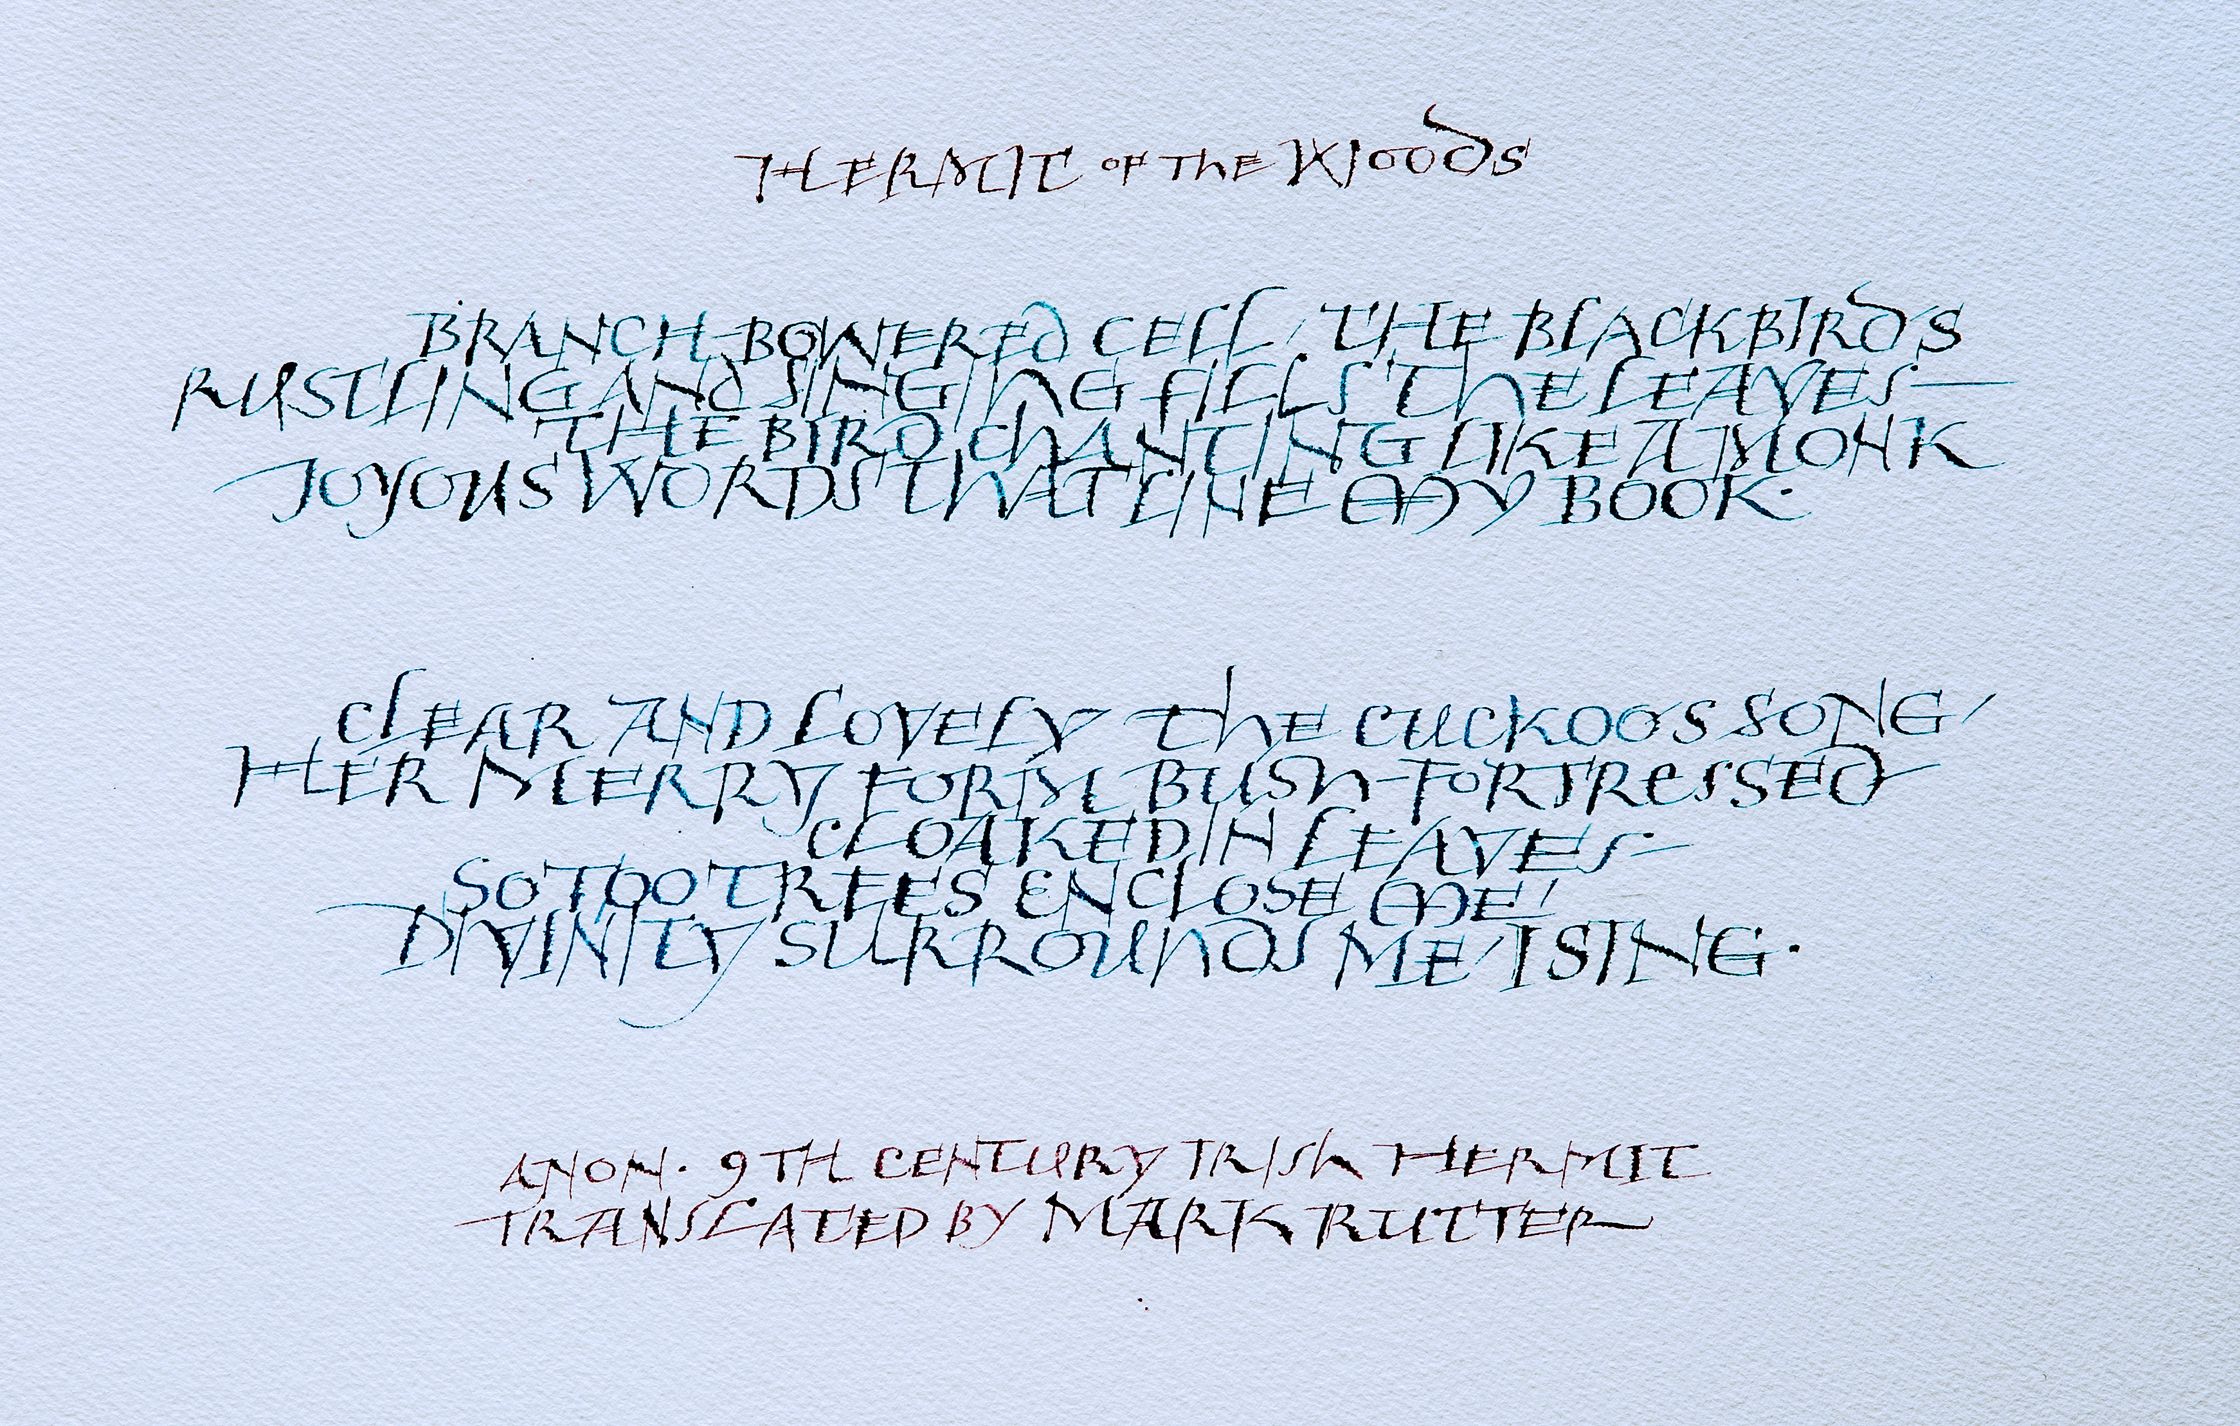 HERMIT OF THE WOODS
BRANCH-BOWERED CELL, THE BLACKBIRD'S
RUSTLING AND SINGING FILLS THE LEAVES —
THE BIRD CHANTING LIKE A MONK
JOYOUS WORDS THAT LINE MY BOOK.
CLEAR AND LOVELY THE CUCKOO'S SONG,
HER MERRY FORM BUSH-FORTRESSED
CLOAKED IN LEAVES -
SO TOO TREES ENCLOSE ME,
DIVINITY SURROUNDS ME, I SING.
ANON. 9TH CENTURY IRISH HERMIT
TRANSLATED BY MARK RUTTER